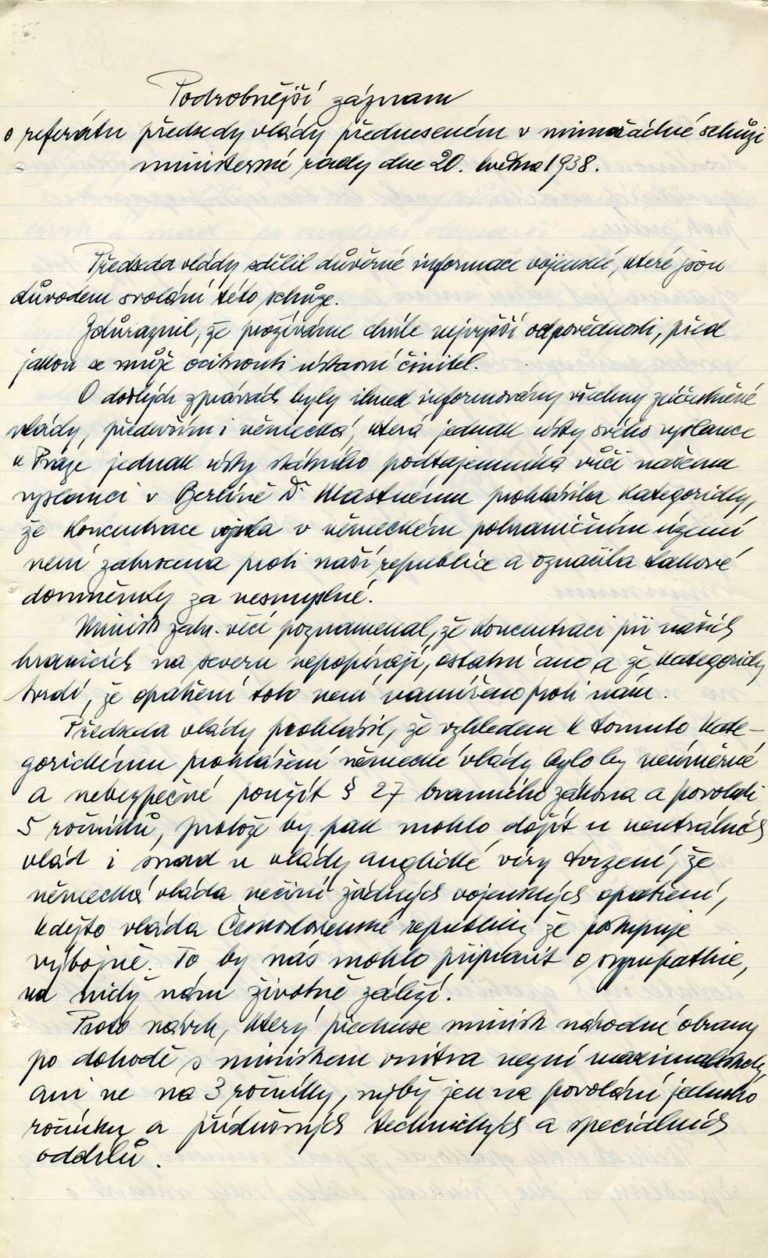 Podrobnější záznam
o referátu předsedy vlády předneseném v mimořádné schůzi
ministerské rady dne 20. května 1938.
Předseda vlády sdělil důvěrné informace vojenské, které jsou
důvodem svolání této schůze.
Zdůraznil, že prožíváme chvíle nejvyšší odpovědnosti, před
jakou se může ocitnouti ústavní činitel.
O došlých zprávách byly ihned informovány všechny zúčastněné
vlády, především i německá, která jednak ústy svého vyslance
v Praze jednak ústy státního podtajemníka vůči našemu
vyslanci v Berlíně Dr Mastnému prohlásila kategoricky,
že koncentrace vojska v německém pohraničním území
není zahrocena proti naší republice a označila takové
domněnky za nesmyslné.
Ministr zahr. věcí poznamenal, že koncentraci při našich
hranicích na severu nepopírají, ostatní ano a že kategoricky
tvrdí, že opatření toto není namířeno proti nám.
Předseda vlády prohlásil, že vzhledem k tomuto kate-
gorickému prohlášení německé vlády bylo by neúměrné
a nebezpečné použít § 27 branného zákona a povolati
5 ročníků, protože by pak mohlo dojít u neutrálních
vlád i snad u vlády anglické víry tvrzení, že
německá vláda nečiní žádných vojenských opatření,
kdežto vláda Československé republiky že postupuje
výbojně. To by nás mohlo připravit o sympathie,
na nichž nám životně záleží.
Proto návrh, který přednese ministr národní obrany
po dohodě s ministrem vnitra nezní
ani ne na 3 ročníky, nýbrž jen na povolání jednoho
ročníku a příslušných technických a speciálních
oddílů.